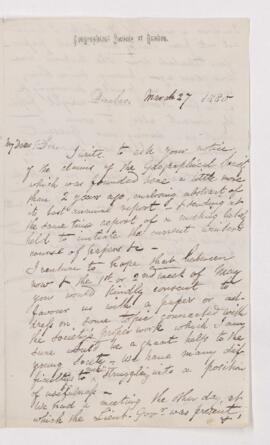 Geographical Society of Quebec.
Quebec March 27 1880
My dear Sir
I write to ask your notice
of the claims of the Geographical Society
which was founded here a little more
than 2 years ago, enclosing abstract of
its last annual report & sending at
the same time report of a meeting lately
held to initiate the current winter's
course of papers &c —
I venture to hope that between
now & the 1st or 2nd week of May
you would kindly consent to
favour us with a paper or ad-
dress on some topic connected with
the Society's proper work which I am
sure would be a great help to the
young Society — We have many dif-
ficulties to struggling into a position
of usefulness —
We had a meeting the other day, at
which the Lieut. Govr. was present,